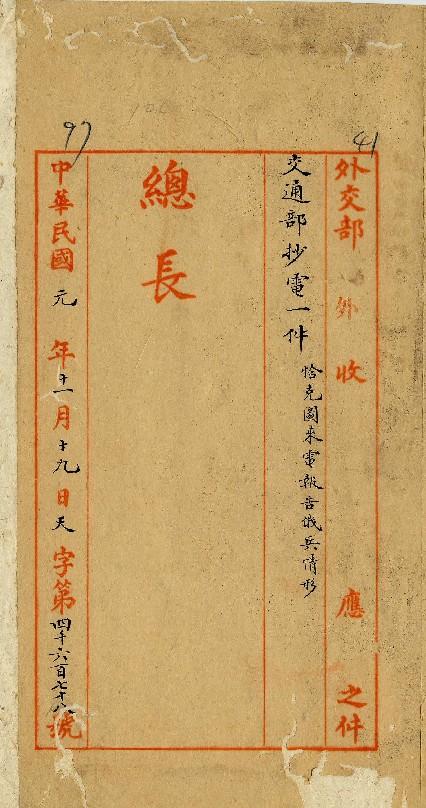 97
41
外交部 外收 應 之件
交通部抄電一件 恰克圖來電報告俄兵情形
總長
中華民國元年十一月十九日天字第四千六百七十八號